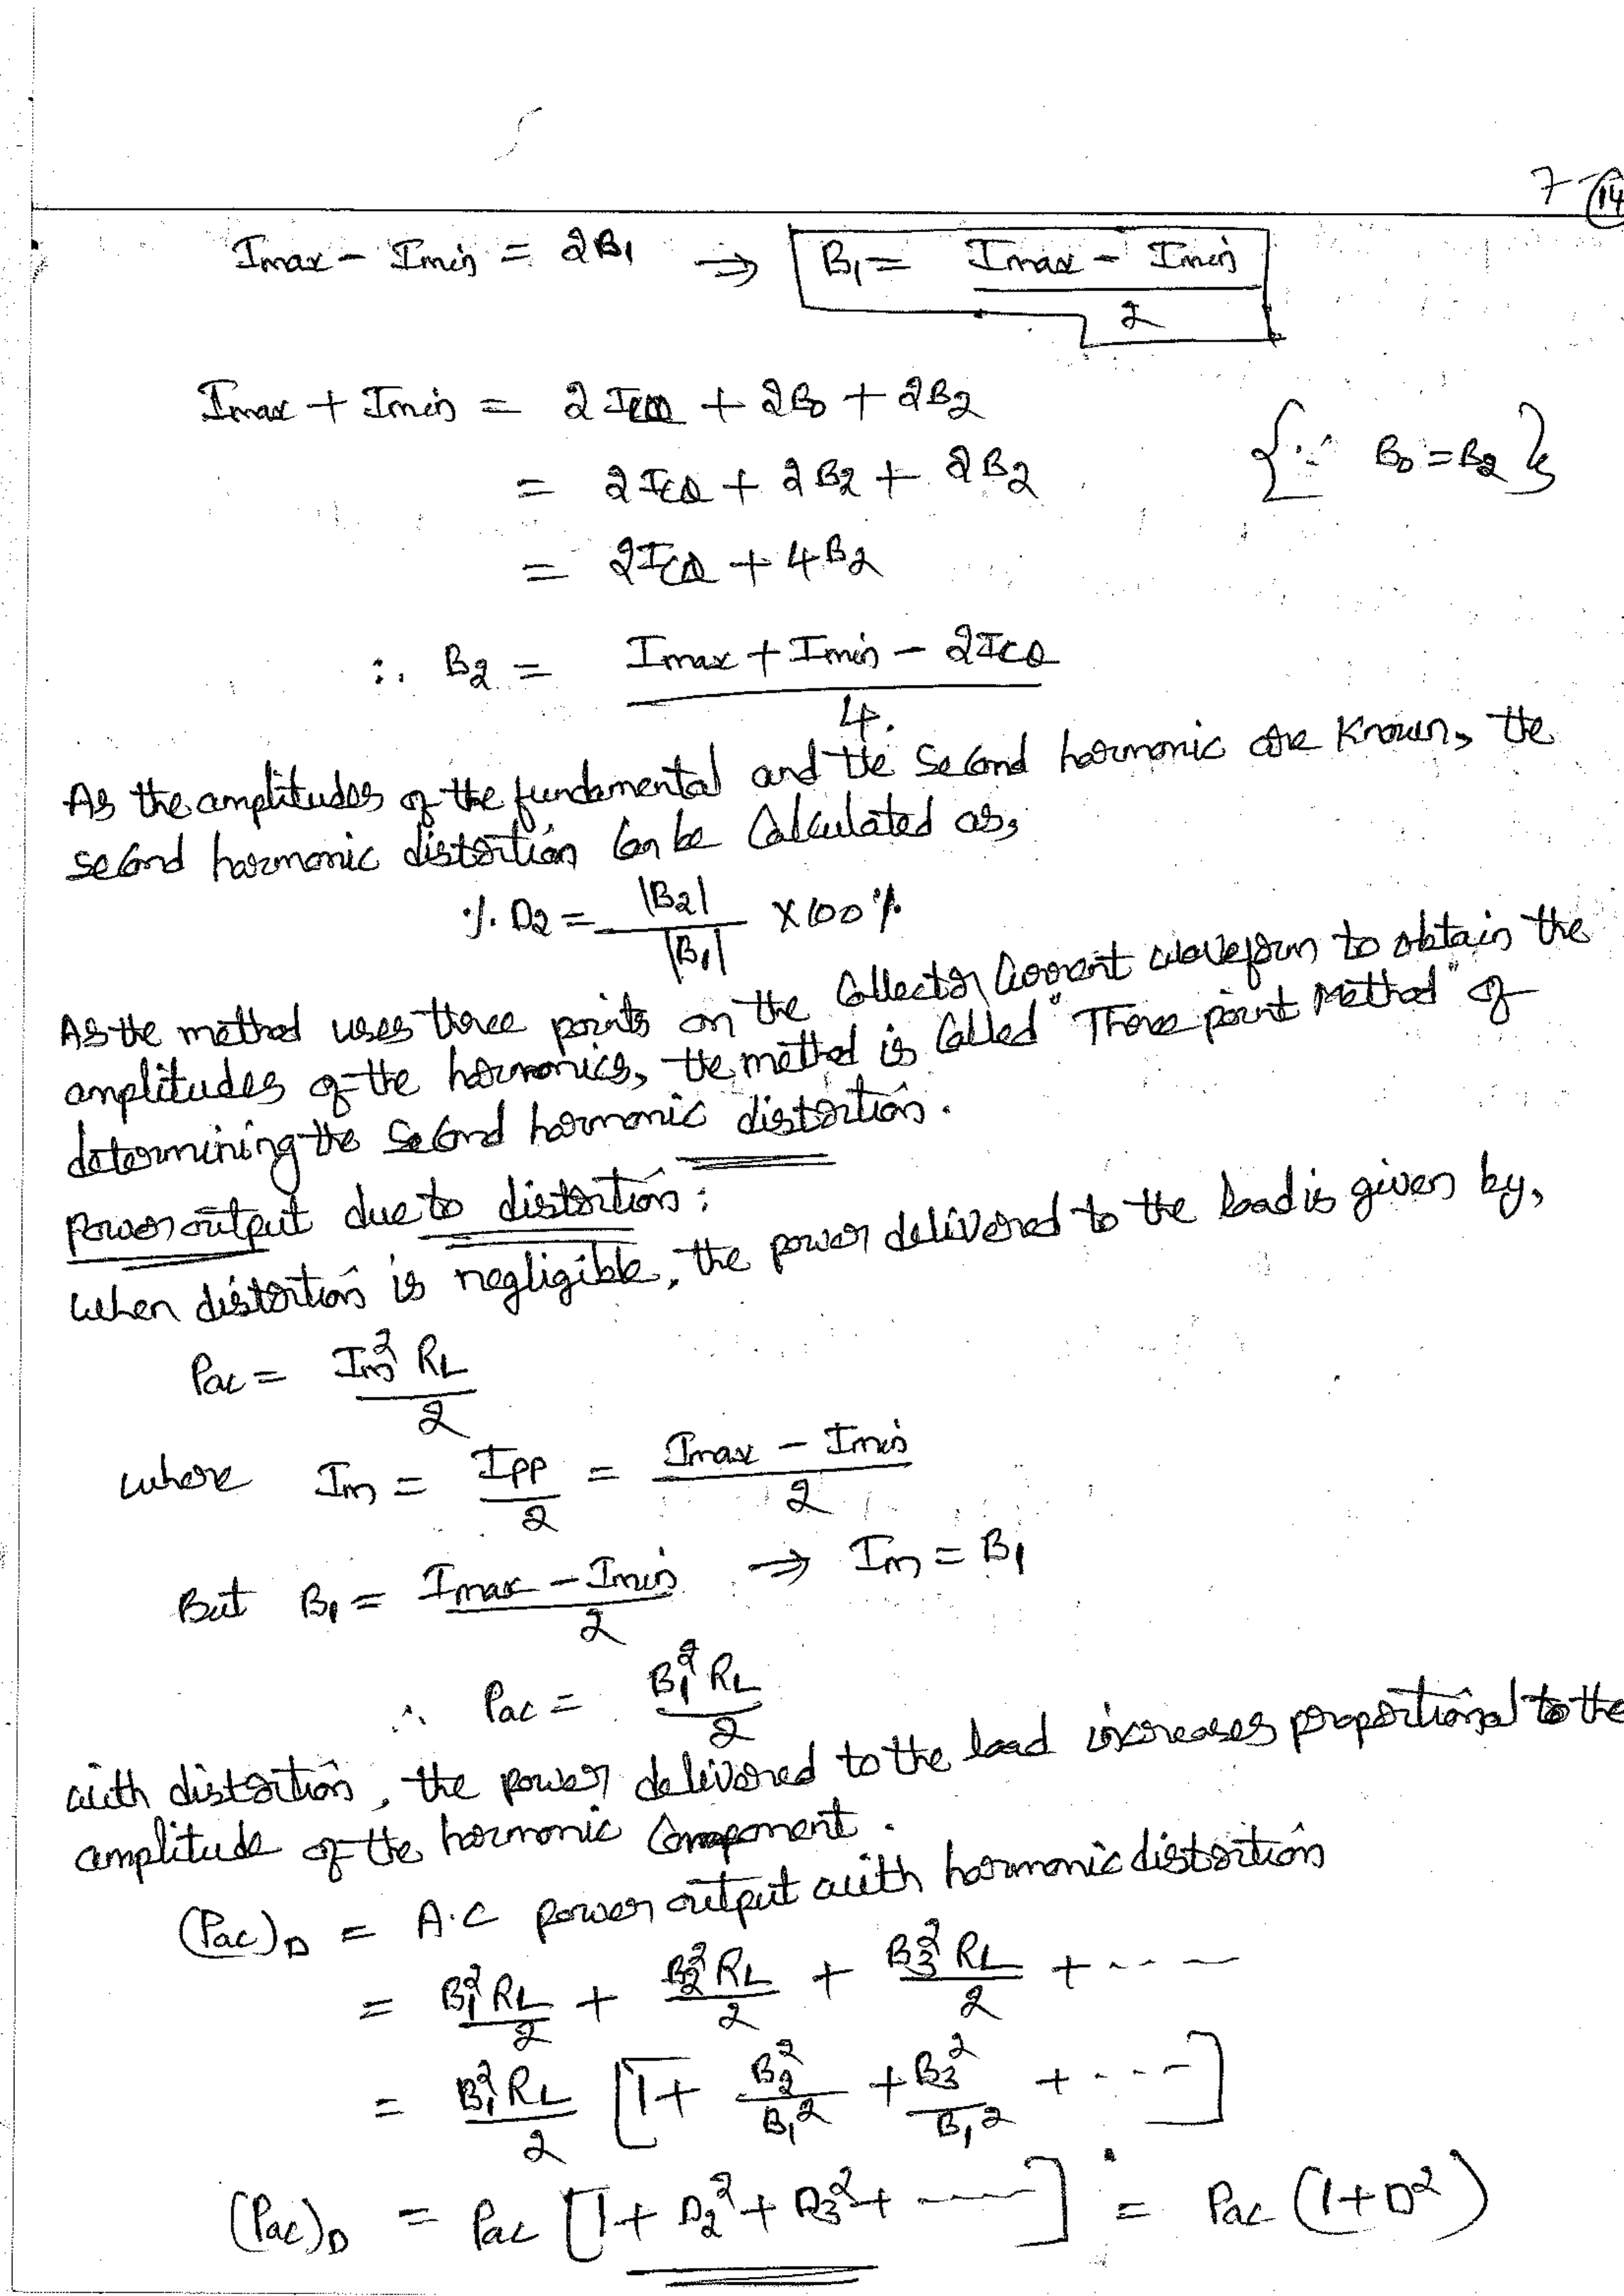 7-14
Imax - Imin = 2B1 ⇒ B1 = (Imax - Imin)/2
Imax + Imin = 2ICQ + 2B0 + 2B2
= 2ICQ + 2B2 + 2B2 {∵ B0 = B2}
= 2ICQ + 4B2
∴ B2 = (Imax + Imin - 2ICQ)/4.
As the amplitudes of the fundamental and the second harmonic are known, the
second harmonic distortion can be calculated as,
% D2 = |B2|/|B1| × 100 %
As the method uses three points on the collector current waveform to obtain the
amplitudes of the harmonics, the method is called "Three point Method" of
determining the second harmonic distortion.
Power output due to distortion:
when distortion is negligible, the power delivered to the load is given by,
Pac = Im² RL/2
where Im = Ipp/2 = (Imax - Imin)/2
But B1 = (Imax - Imin)/2 ⇒ Im = B1
∴ Pac = B1² RL/2
with distortion, the power delivered to the load increases proportional to the
amplitude of the harmonic component.
(Pac)D = A.C power output with harmonic distortion
= B1² RL/2 + B2² RL/2 + B3² RL/2 + ----
= B1² RL/2 [1 + B2²/B1² + B3²/B1² + ----]
(Pac)D = Pac [1 + D2² + D3² + ----] = Pac (1 + D²)